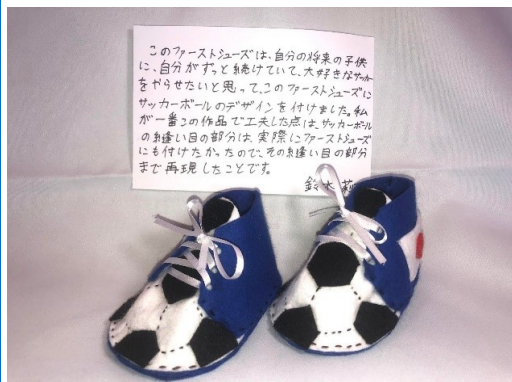 このファーストシューズは、自分の将来の子供
に、自分がずっと続けていて、大好きなサッカー
をやらせたいと思って、このファーストシューズに
サッカーボールのデザインを付けました。私
が一番この作品で工夫した点は、サッカーボール
の縫い目の部分は、実際にファーストシューズ
にも付けたかったので、その縫い目の部分
まで再現したことです。
鈴木